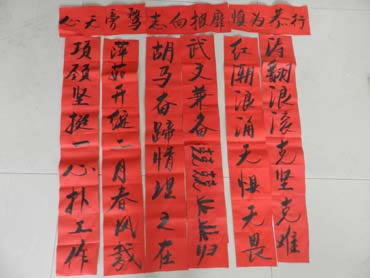 心无旁骛志向担靡慎为恭行
涛翻浪滚克坚克难
红潮浪涌无惧无畏
武文兼备兢兢业业归
胡马奋蹄情理之在
萍茹开绽二月春风裁
项领坚挺一心扑工作